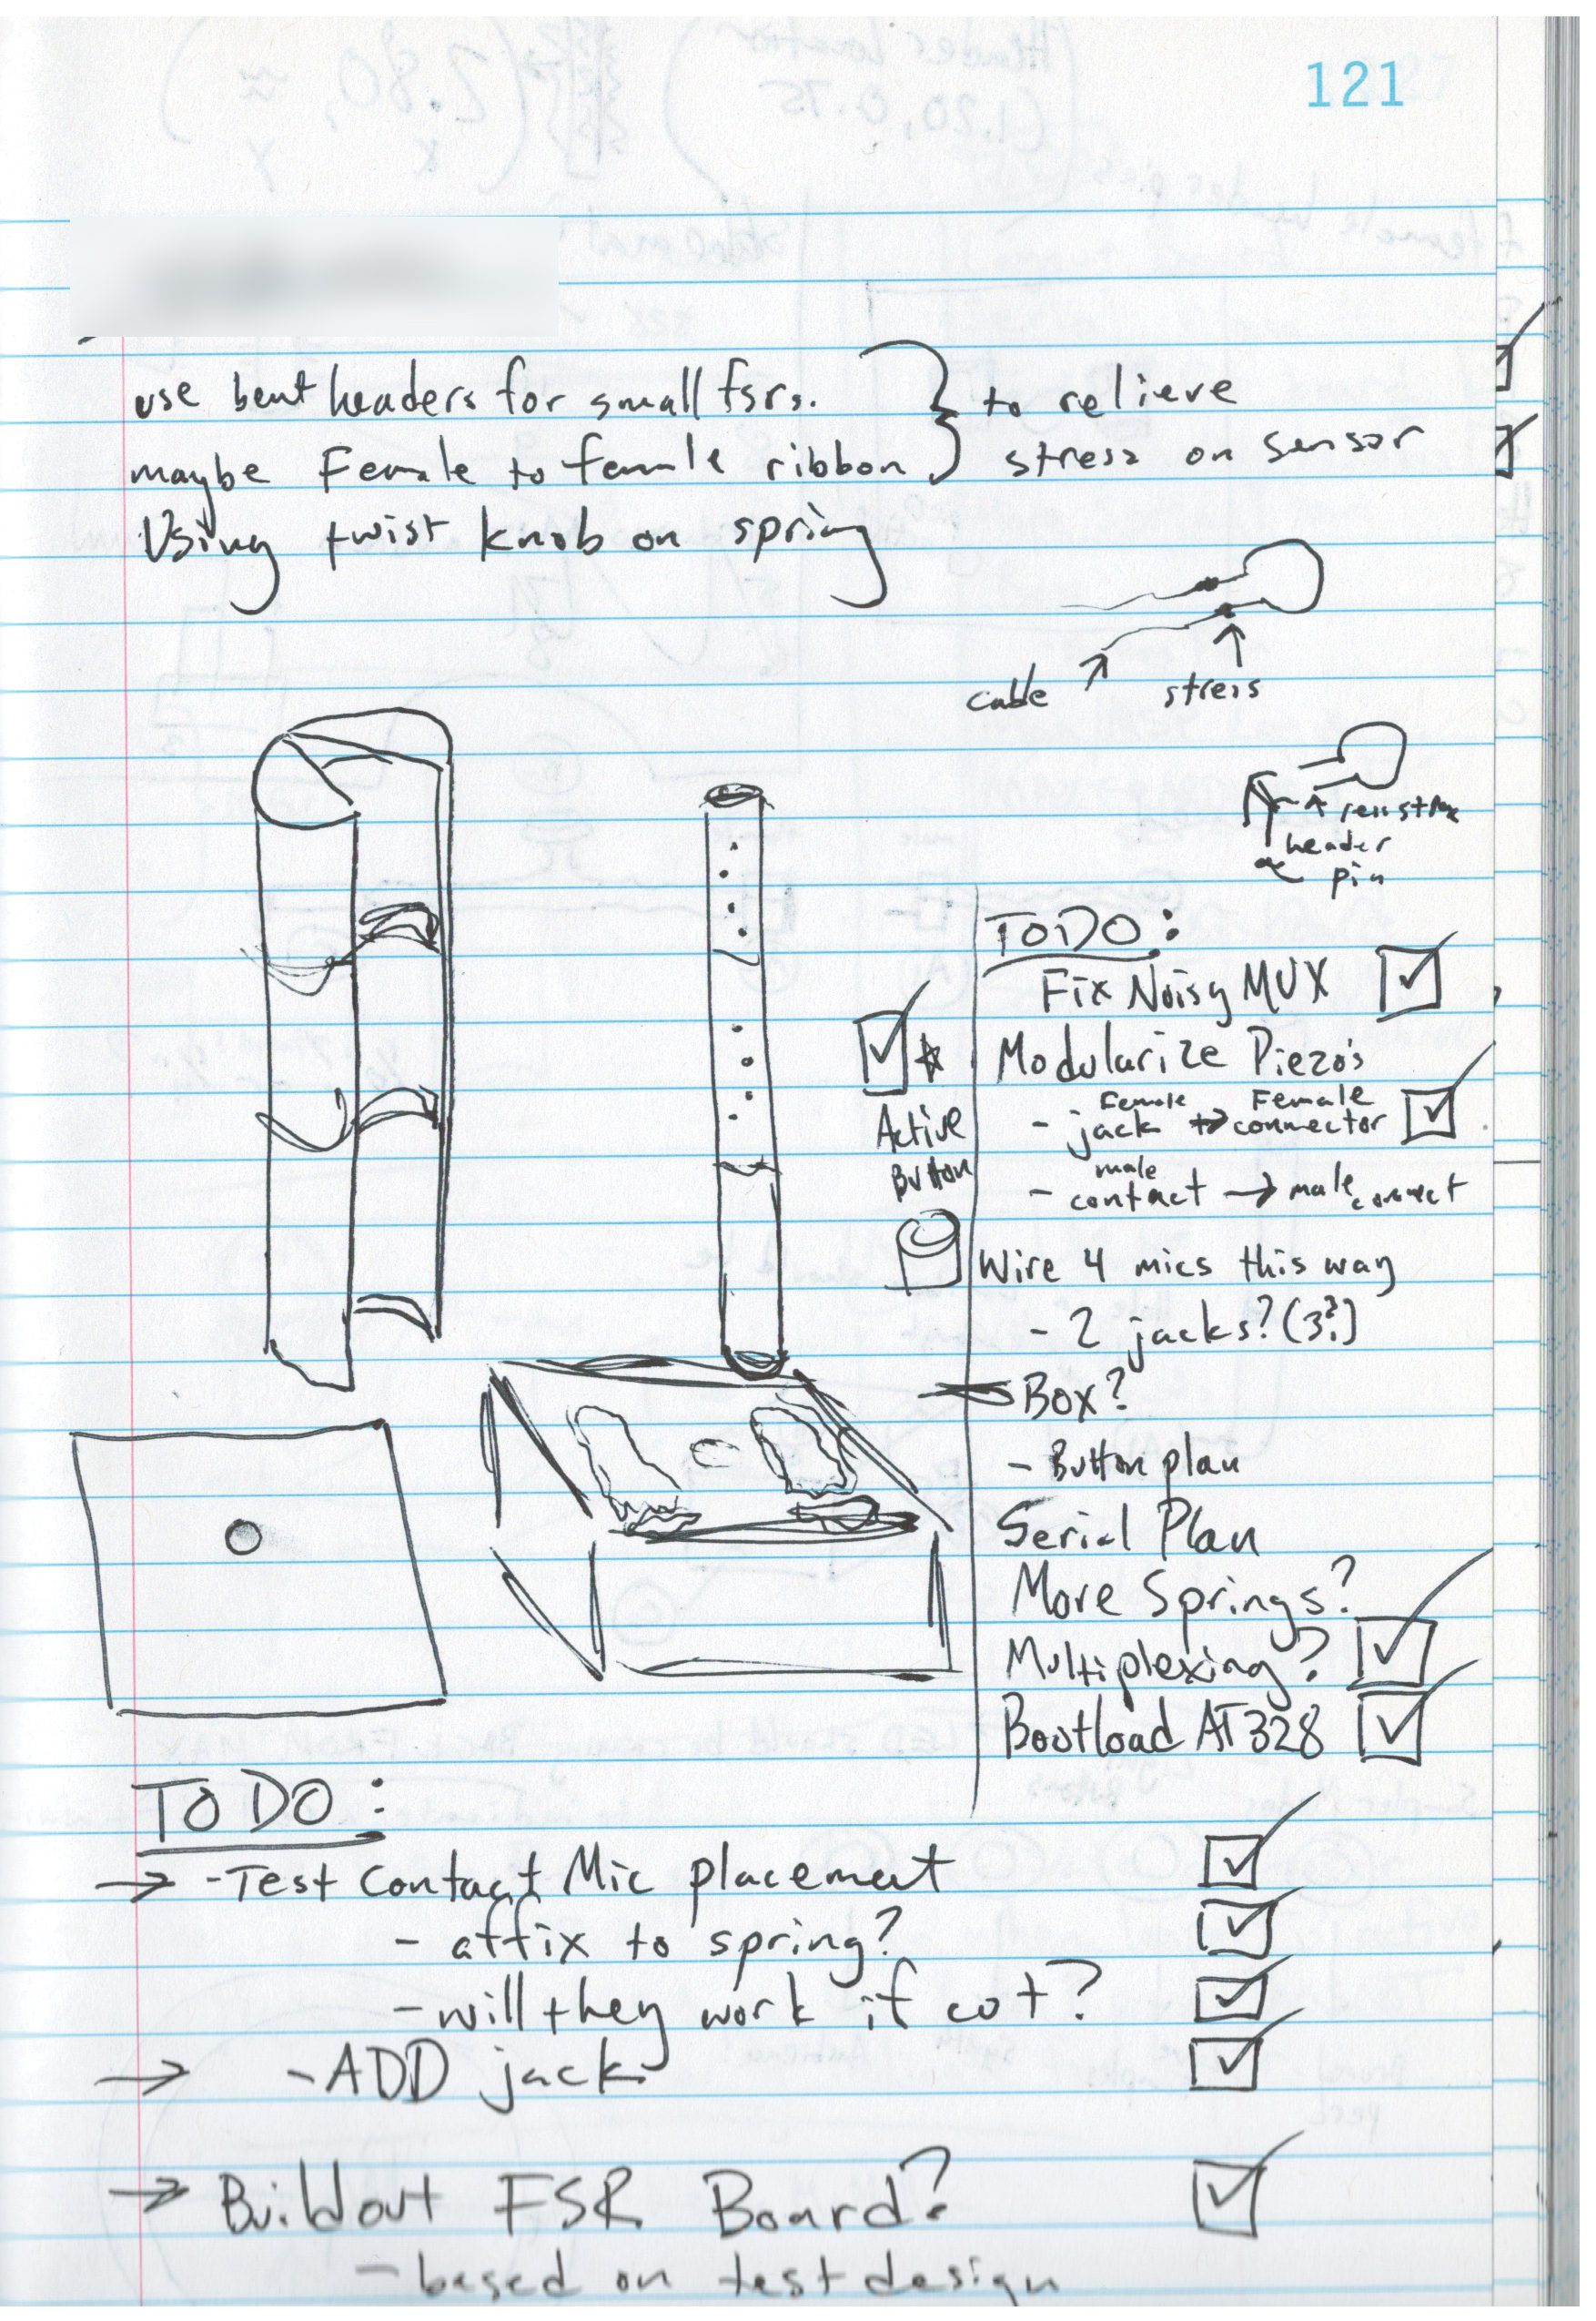 121
use bent headers for small fsrs.
maybe Female to female ribbon
to relieve
stress on sensor
Using twist knob on spring
cable
stress
header
pin
TODO:
Fix Noisy MUX
Modularize Piezo's
- Female jack → Female connector
- male contact → male connect
Active
Button
Wire 4 mics this way
- 2 jacks? (3?)
Box?
- Button plan
Serial Plan
More Springs?
Multiplexing?
Bootload AT328
TO DO:
→ - Test Contact Mic placement
- affix to spring?
- will they work if cut?
→ - ADD jack
→ Buildout FSR Board?
- based on test design